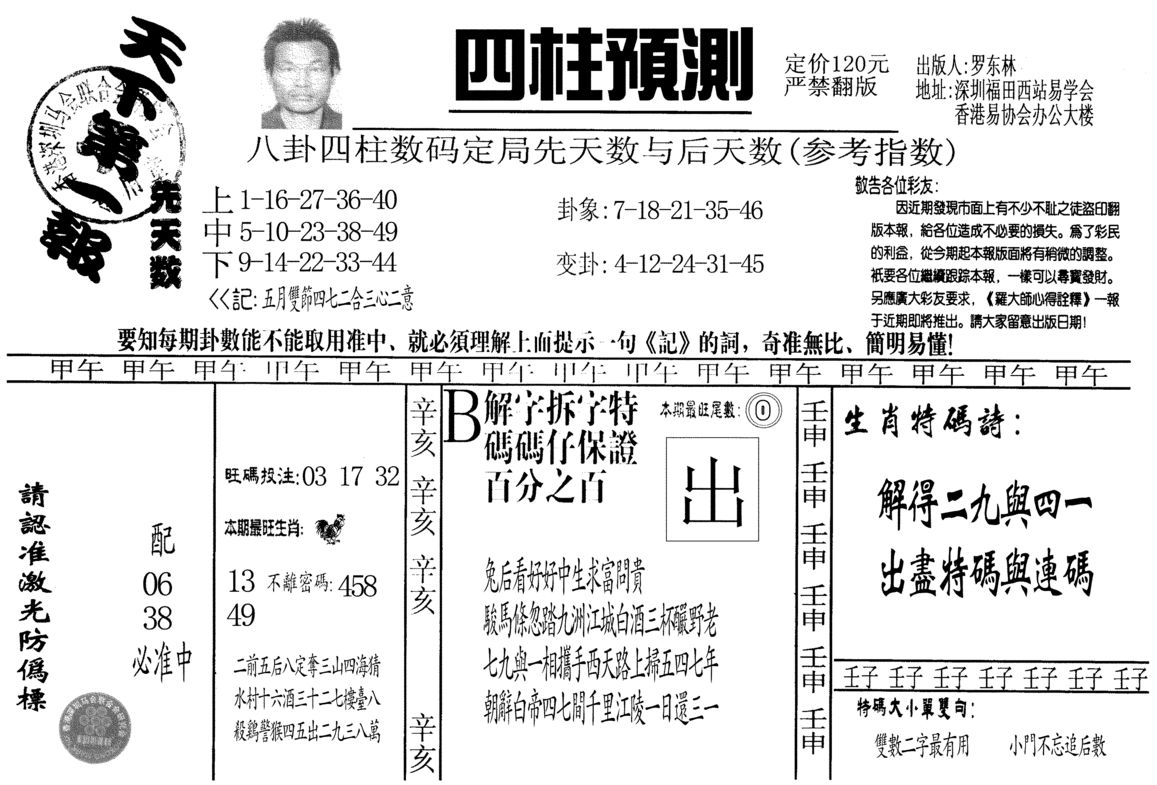 天下第一報
四柱預測
定价120元
严禁翻版
出版人:罗东林
地址:深圳福田西站易学会
香港易协会办公大楼
八卦四柱数码定局先天数与后天数(参考指数)
先天数
上 1-16-27-36-40
中 5-10-23-38-49
下 9-14-22-33-44
<<記: 五月雙節四七二合三心二意
卦象: 7-18-21-35-46
变卦: 4-12-24-31-45
敬告各位彩友:
因近期發現市面上有不少不耻之徒盜印翻
版本報，給各位造成不必要的損失。爲了彩民
的利益，從今期起本報版面將有稍微的調整。
衹要各位繼續跟踪本報，一樣可以尋寶發財。
另應廣大彩友要求，《羅大師心得詮釋》一報
于近期即將推出。請大家留意出版日期!
要知每期卦數能不能取用准中、就必須理解上面提示一句《記》的詞，奇准無比、簡明易懂!
甲午 甲午 甲午 甲午 甲午 甲午 甲午 甲午 甲午 甲午 甲午 甲午 甲午 甲午 甲午
請認准激光防僞標
配
06
38
必准中
旺碼投注:03 17 32
本期最旺生肖:
13 不離密碼: 458
49
二前五后八定奪三山四海猜
水村十六酒三十二七樓臺八
殺鷄警猴四五出二九三八萬
辛亥
辛亥
辛亥
辛亥
B 解字拆字特
碼碼仔保證
百分之百
本期最旺尾數: 0
出
兔后看好好中生求富問貴
駿馬條忽踏九洲江城白酒三杯釅野老
七九與一相攜手西天路上掃五四七年
朝辭白帝四七間千里江陵一日還三一
壬申
壬申
壬申
壬申
壬申
壬申
生肖特碼詩:
解得二九與四一
出盡特碼與連碼
壬子 壬子 壬子 壬子 壬子 壬子 壬子
特碼大小單雙句:
雙數二字最有用 小門不忘追后數